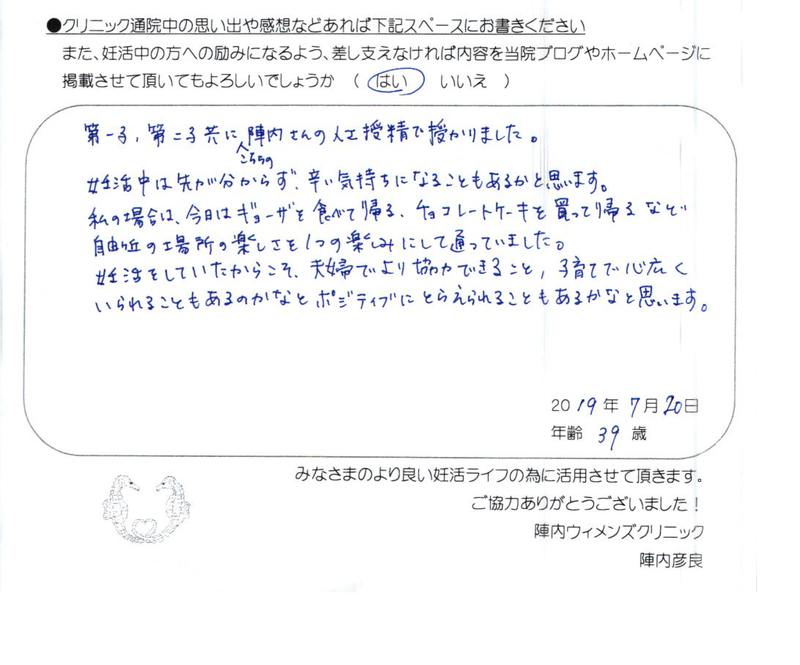 ●クリニック通院中の思い出や感想などあれば下記スペースにお書きください
また、妊活中の方への励みになるよう、差し支えなければ内容を当院ブログやホームページに
掲載させて頂いてもよろしいでしょうか （ はい いいえ ）
第一子，第二子共に陣内さんの人工授精で授かりました。
こちらの
妊活中は先が分からず、辛い気持ちになることもあるかと思います。
私の場合は、今日はギョーザを食べて帰る、チョコレートケーキを買って帰るなど
自由が丘の場所の楽しさを1つの楽しみにして通っていました。
妊活をしていたからこそ、夫婦でより協力できること，子育てで心広く
いられることもあるのかなとポジティブにとらえられることもあるかなと思います。
2019年 7月20日
年齢 39 歳
みなさまのより良い妊活ライフの為に活用させて頂きます。
ご協力ありがとうございました！
陣内ウィメンズクリニック
陣内彦良